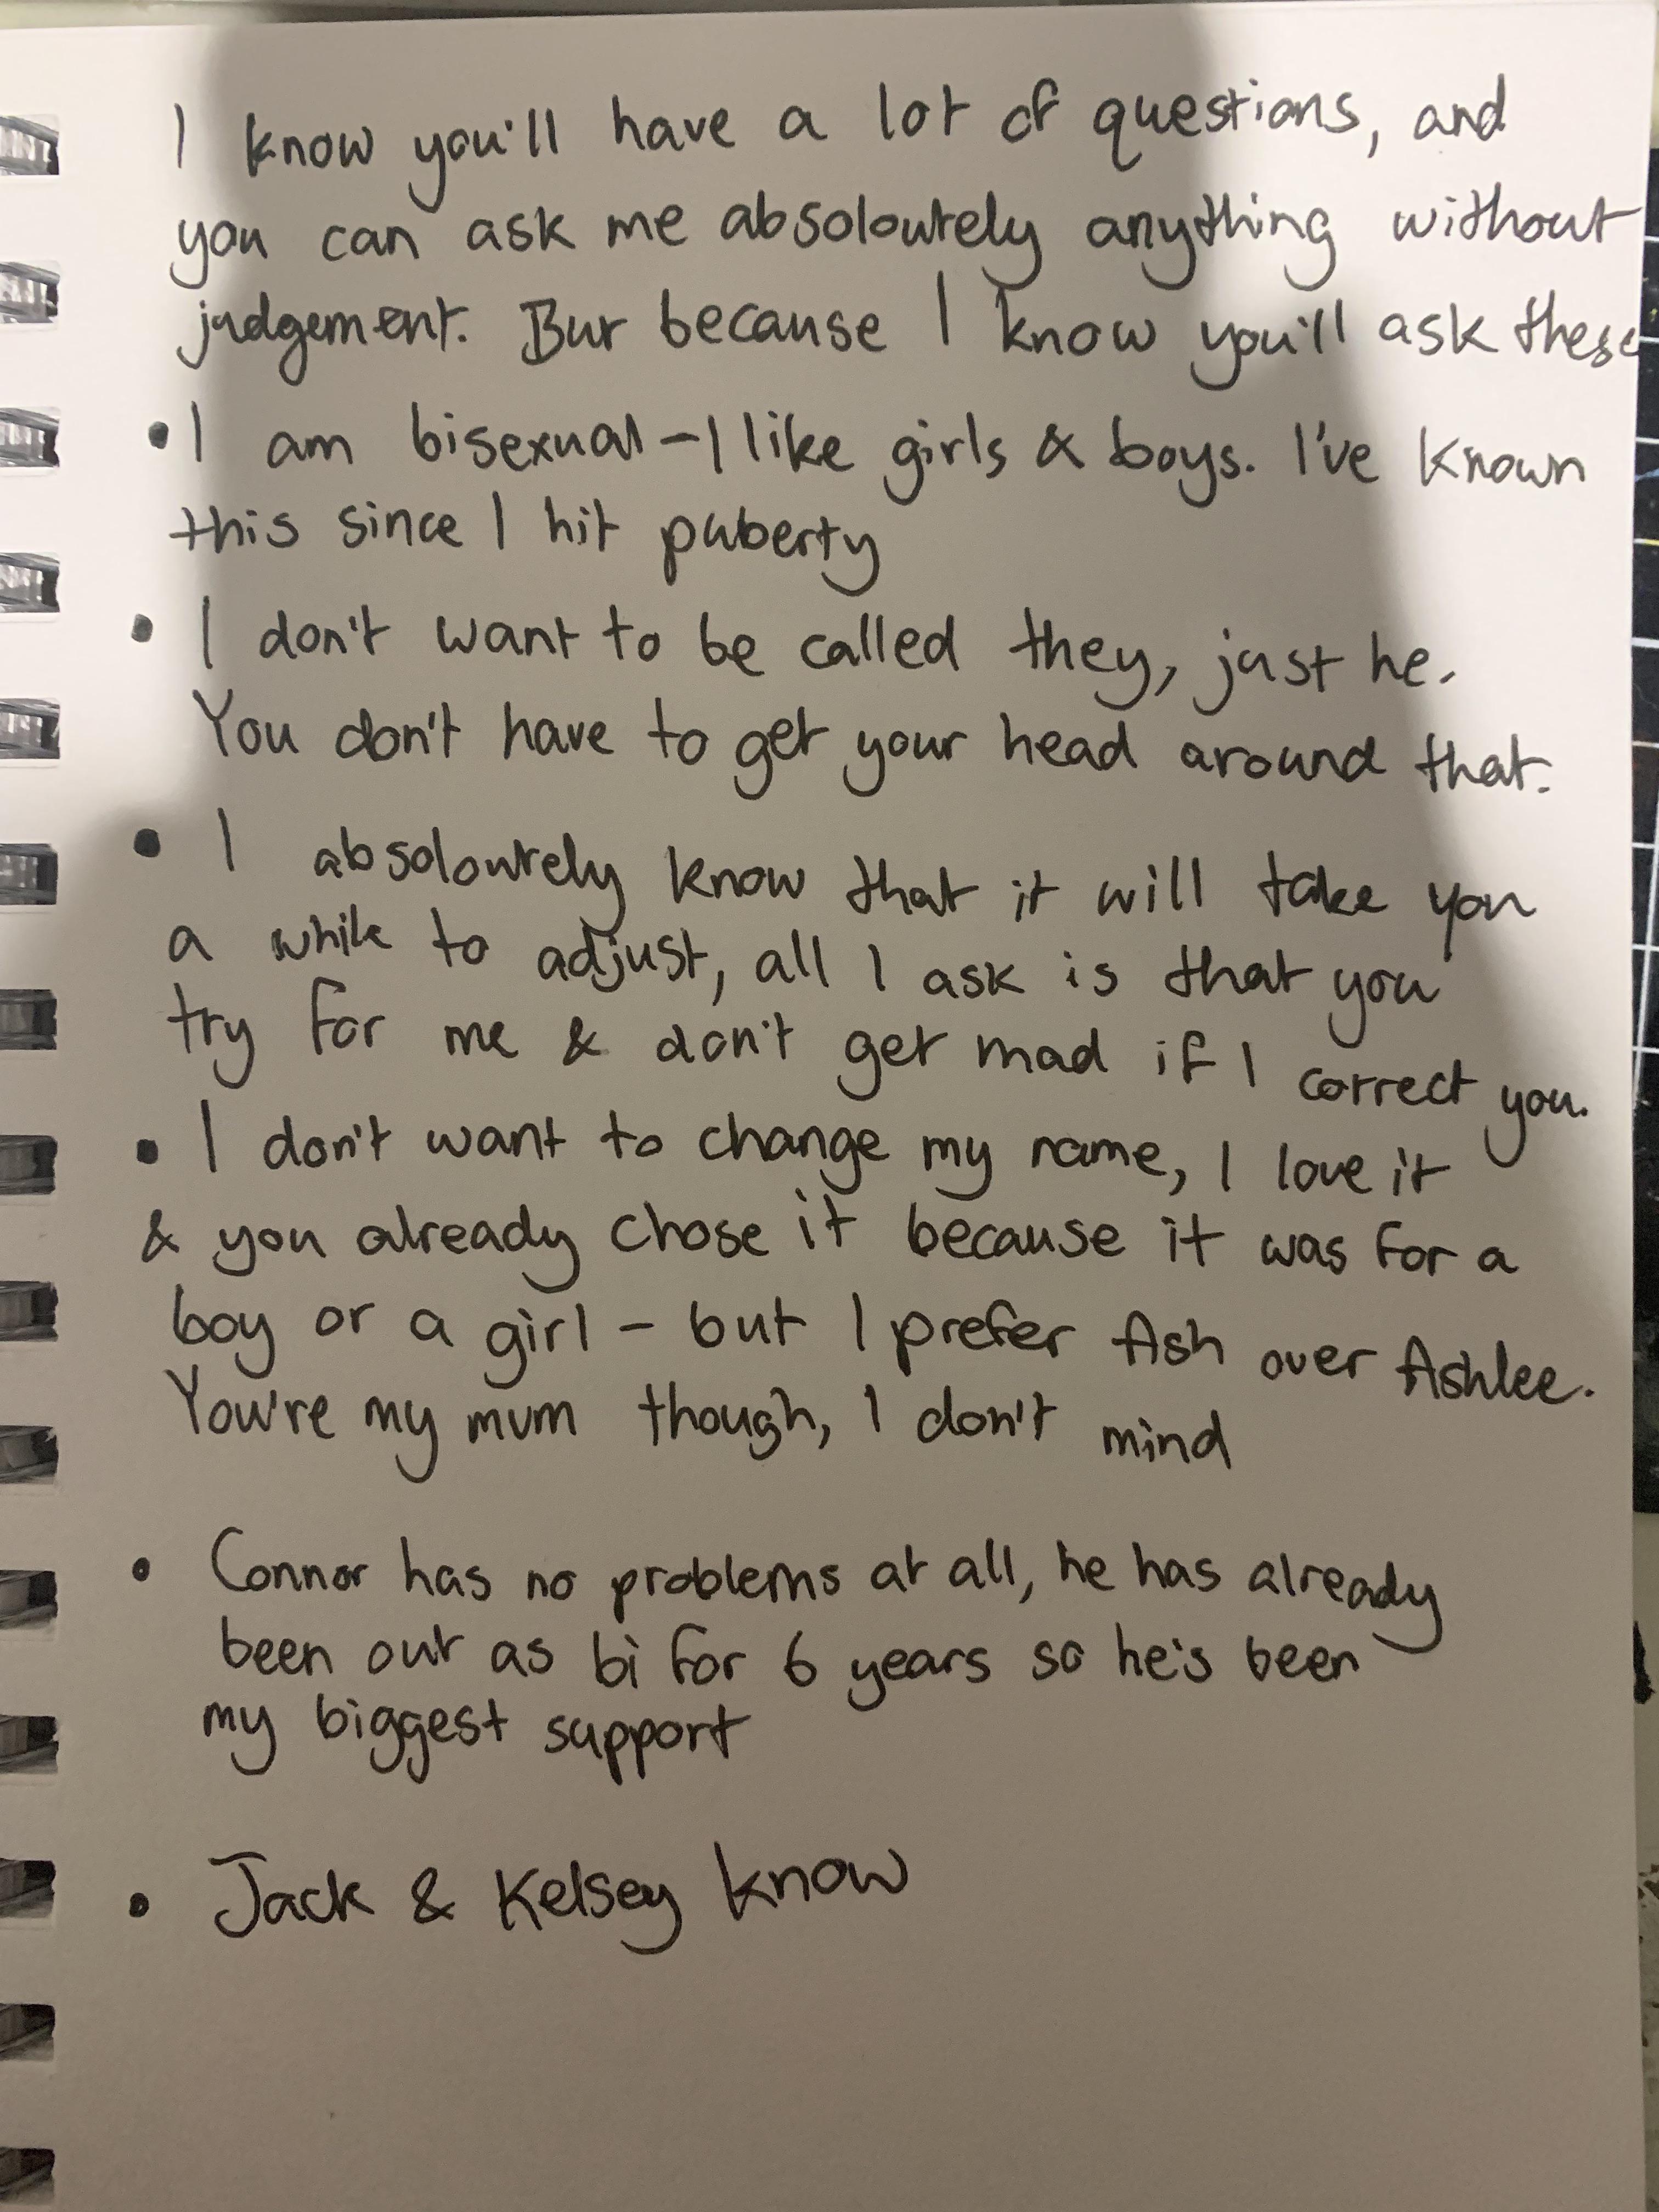 I know you'll have a lot of questions, and
you can ask me absoloutely anything without
judgement. But because I know you'll ask these
• I am bisexual - I like girls & boys. I've known
this since I hit puberty
• I don't want to be called they, just he.
You don't have to get your head around that.
• I absoloutely know that it will take you
a while to adjust, all I ask is that you
try for me & don't get mad if I correct you.
• I don't want to change my name, I love it
& you already chose it because it was for a
boy or a girl - but I prefer Ash over Ashlee.
You're my mum though, I don't mind
• Connor has no problems at all, he has already
been out as bi for 6 years so he's been
my biggest support
• Jack & Kelsey know